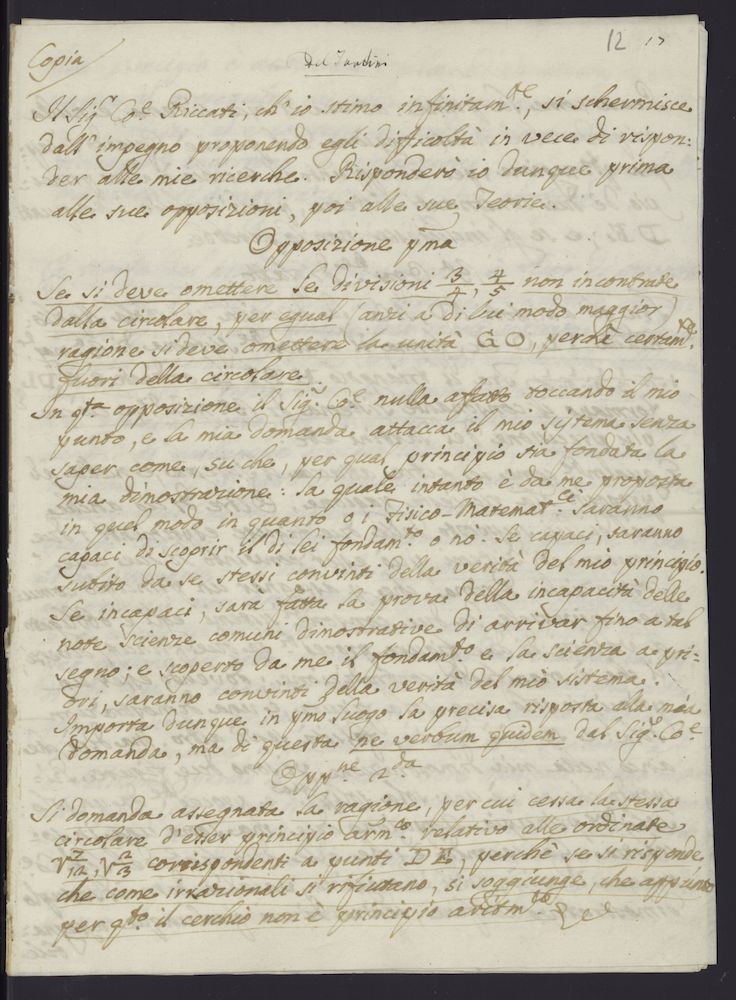 12
Copia
Del Tartini
Il Sig.r Co.e Riccati, ch' io stimo infinitam.te, si schermisce
dall' impegno proponendo egli difficoltà in vece di rispon:
der alle mie ricerche. Risponderò io dunque prima
alle sue opposizioni, poi alle sue Teorie.
Opposizione pma
Se si deve omettere le divisioni 3/4, 4/5 non incontrate
dalla circolare, per egual (anzi a di lui modo maggior)
ragione si deve omettere la unità GO, perchè certam.te
fuori della circolare.
In q.ta opposizione il Sig.r Co.e nulla afatto toccando il mio
punto, e la mia domanda attacca il mio sistema senza
saper come, su che, per qual principio sia fondata la
mia dimostrazione: la quale intanto è da me proposta
in quel modo in quanto o i Fisico-Matemat.ci saranno
capaci di scoprir il di lei fondam.to o nò. Se capaci, saranno
subito da se stessi convinti della verità del mio principio.
Se incapaci, sarà fatta la prova della incapacità delle
note scienze comuni dimostrative di arrivar fino a tal
segno; e scoperto da me il fondam.to e la scienza a pri:
ori, saranno convinti della verità del mio sistema.
Importa dunque in pmo luogo la precisa risposta alla mia
domanda, ma di questa ne verbum quidem dal Sig.r Co.e
Opp.ne 2.da
Si domanda assegnata la ragione, per cui cessa la stessa
circolare d'esser principio arm.co relativo alle ordinate
corrispondenti a punti DE, perchè se si risponde
che come irrazionali si rifiutano, si soggiunge, che appunto
per q.to il cerchio non è principio aritm.co